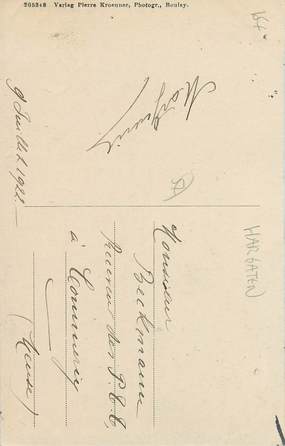 205348 Verlag Pierre Kroenner, Photogr., Boulay.
164
9 Juillet 1921.
HARGATEN
Monsieur
Beckmann
Receveur des P.T.T,
à Commercy
(Meuse)